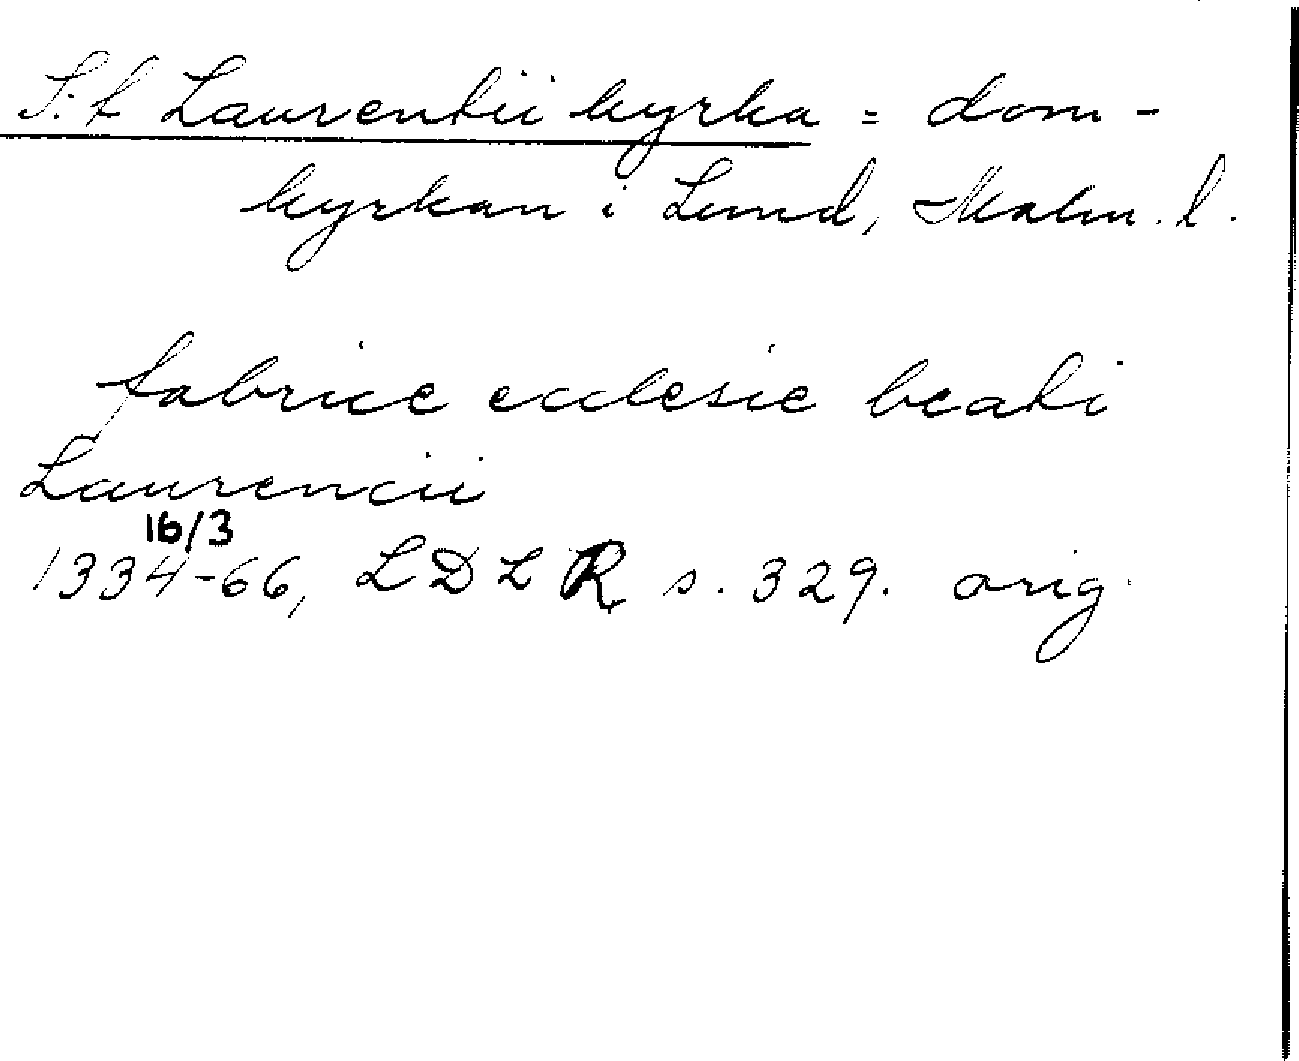 S:t Laurentii kyrka = dom-
kyrkan i Lund, Malm. l.
fabrice ecclesie beati
Laurencii
16/3
1334-66, LDLR s. 329. orig.